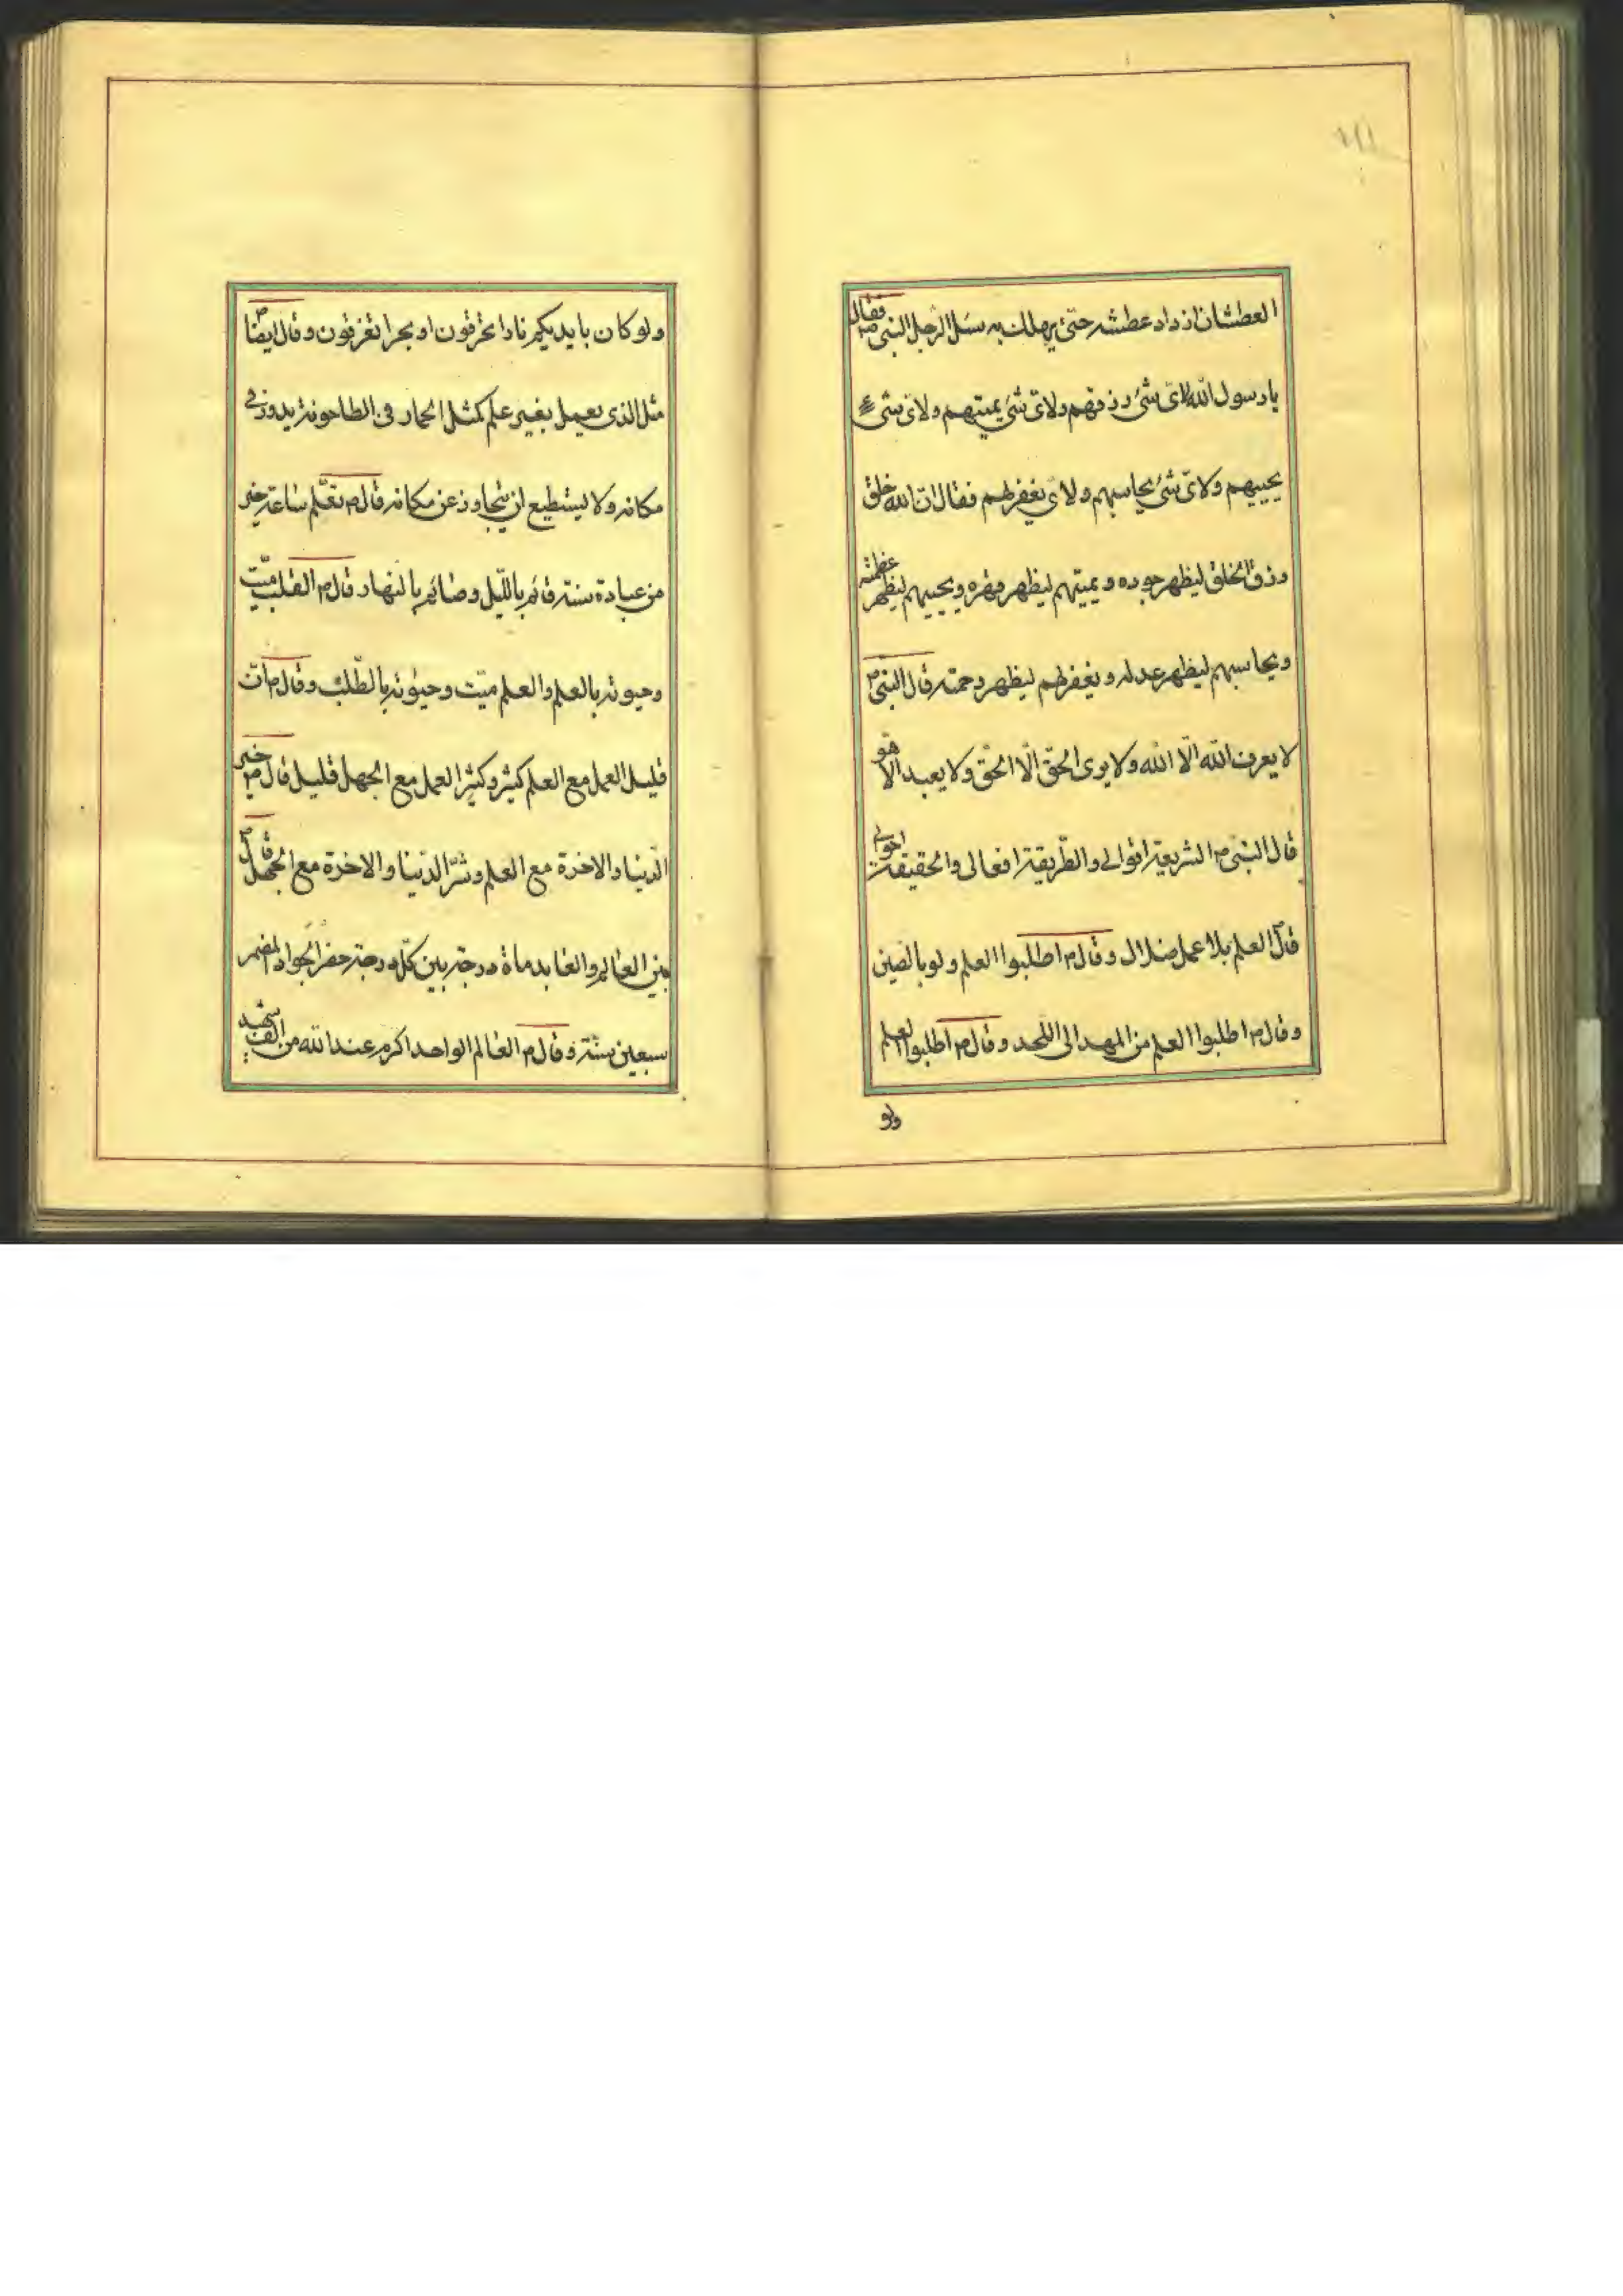 العطشان ازداد عطشه حتی یهلك به سئل الرجل النبی ص فقال
یا رسول الله لای شیٔ رزقهم ولای شیٔ یمیتهم ولای شیٔ
یحییهم ولای شیٔ یحاسبهم ولای یغفر لهم فقال ان الله خلق
رزق الخلق لیظهر جوده ویمیتهم لیظهر قهره ویحییهم لیظهر عظمته
ویحاسبهم لیظهر عدله ویغفر لهم لیظهر رحمته قال النبی ص
لا یعرف الله الّا الله ولا یری الحقّ الّا الحقّ ولا یعبد الّا هو
قال النبی ص الشریعة اقوالی والطّریقة افعالی والحقیقة احوالی
قال العلم بلا عمل ضلال وقال ص اطلبوا العلم ولو بالصین
وقال ص اطلبوا العلم من المهد الی اللحد وقال ص اطلبوا العلم
ولو
ولو کان بایدیکم نارا تحرقون او بحرا تغرقون وقال ایضا ص
مثل الذی یعمل بغیر علم کمثل الحمار فی الطاحونة یدور فی
مکانه ولا یستطیع ان یتجاوز عن مکانه قال ص تعلّم ساعة خیر
من عبادة سنة قائم باللّیل وصائم بالنهار قال ص القلب میّت
وحیوته بالعلم والعلم میّت وحیوته بالطّلب وقال ص انّ
قلیل العمل مع العلم کثیر وکثیر العمل مع الجهل قلیل قال ص خیر
الدّنیا والاخرة مع العلم وشرّ الدّنیا والاخرة مع الجهل قال ص
بین العالم والعابد ماة درجة بین کلّ درجة حضر الجواد المضمر
سبعین سنة وقال ص العالم الواحد اکرم عند الله من الف شهید